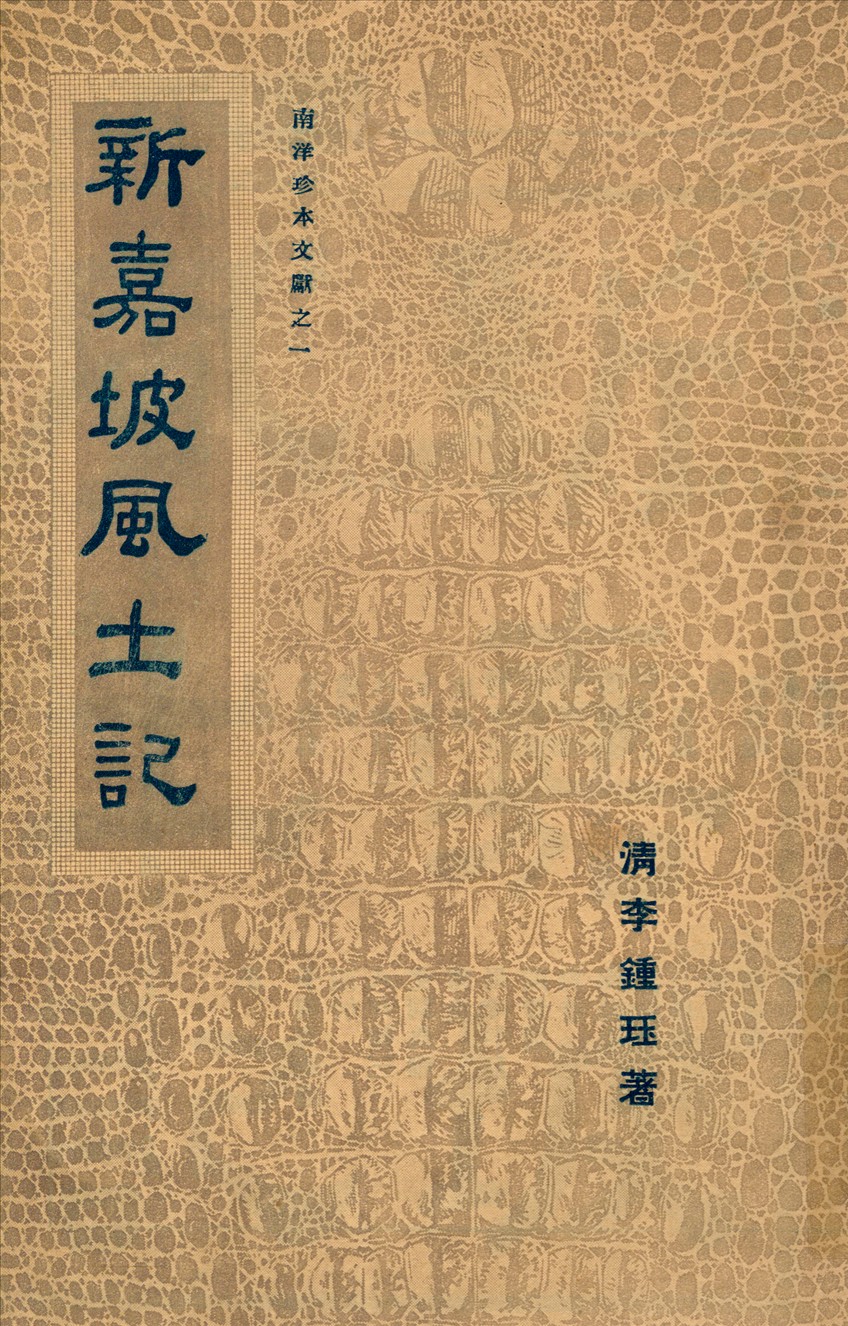 南洋珍本文獻之一
新嘉坡風土記
清李鍾珏著